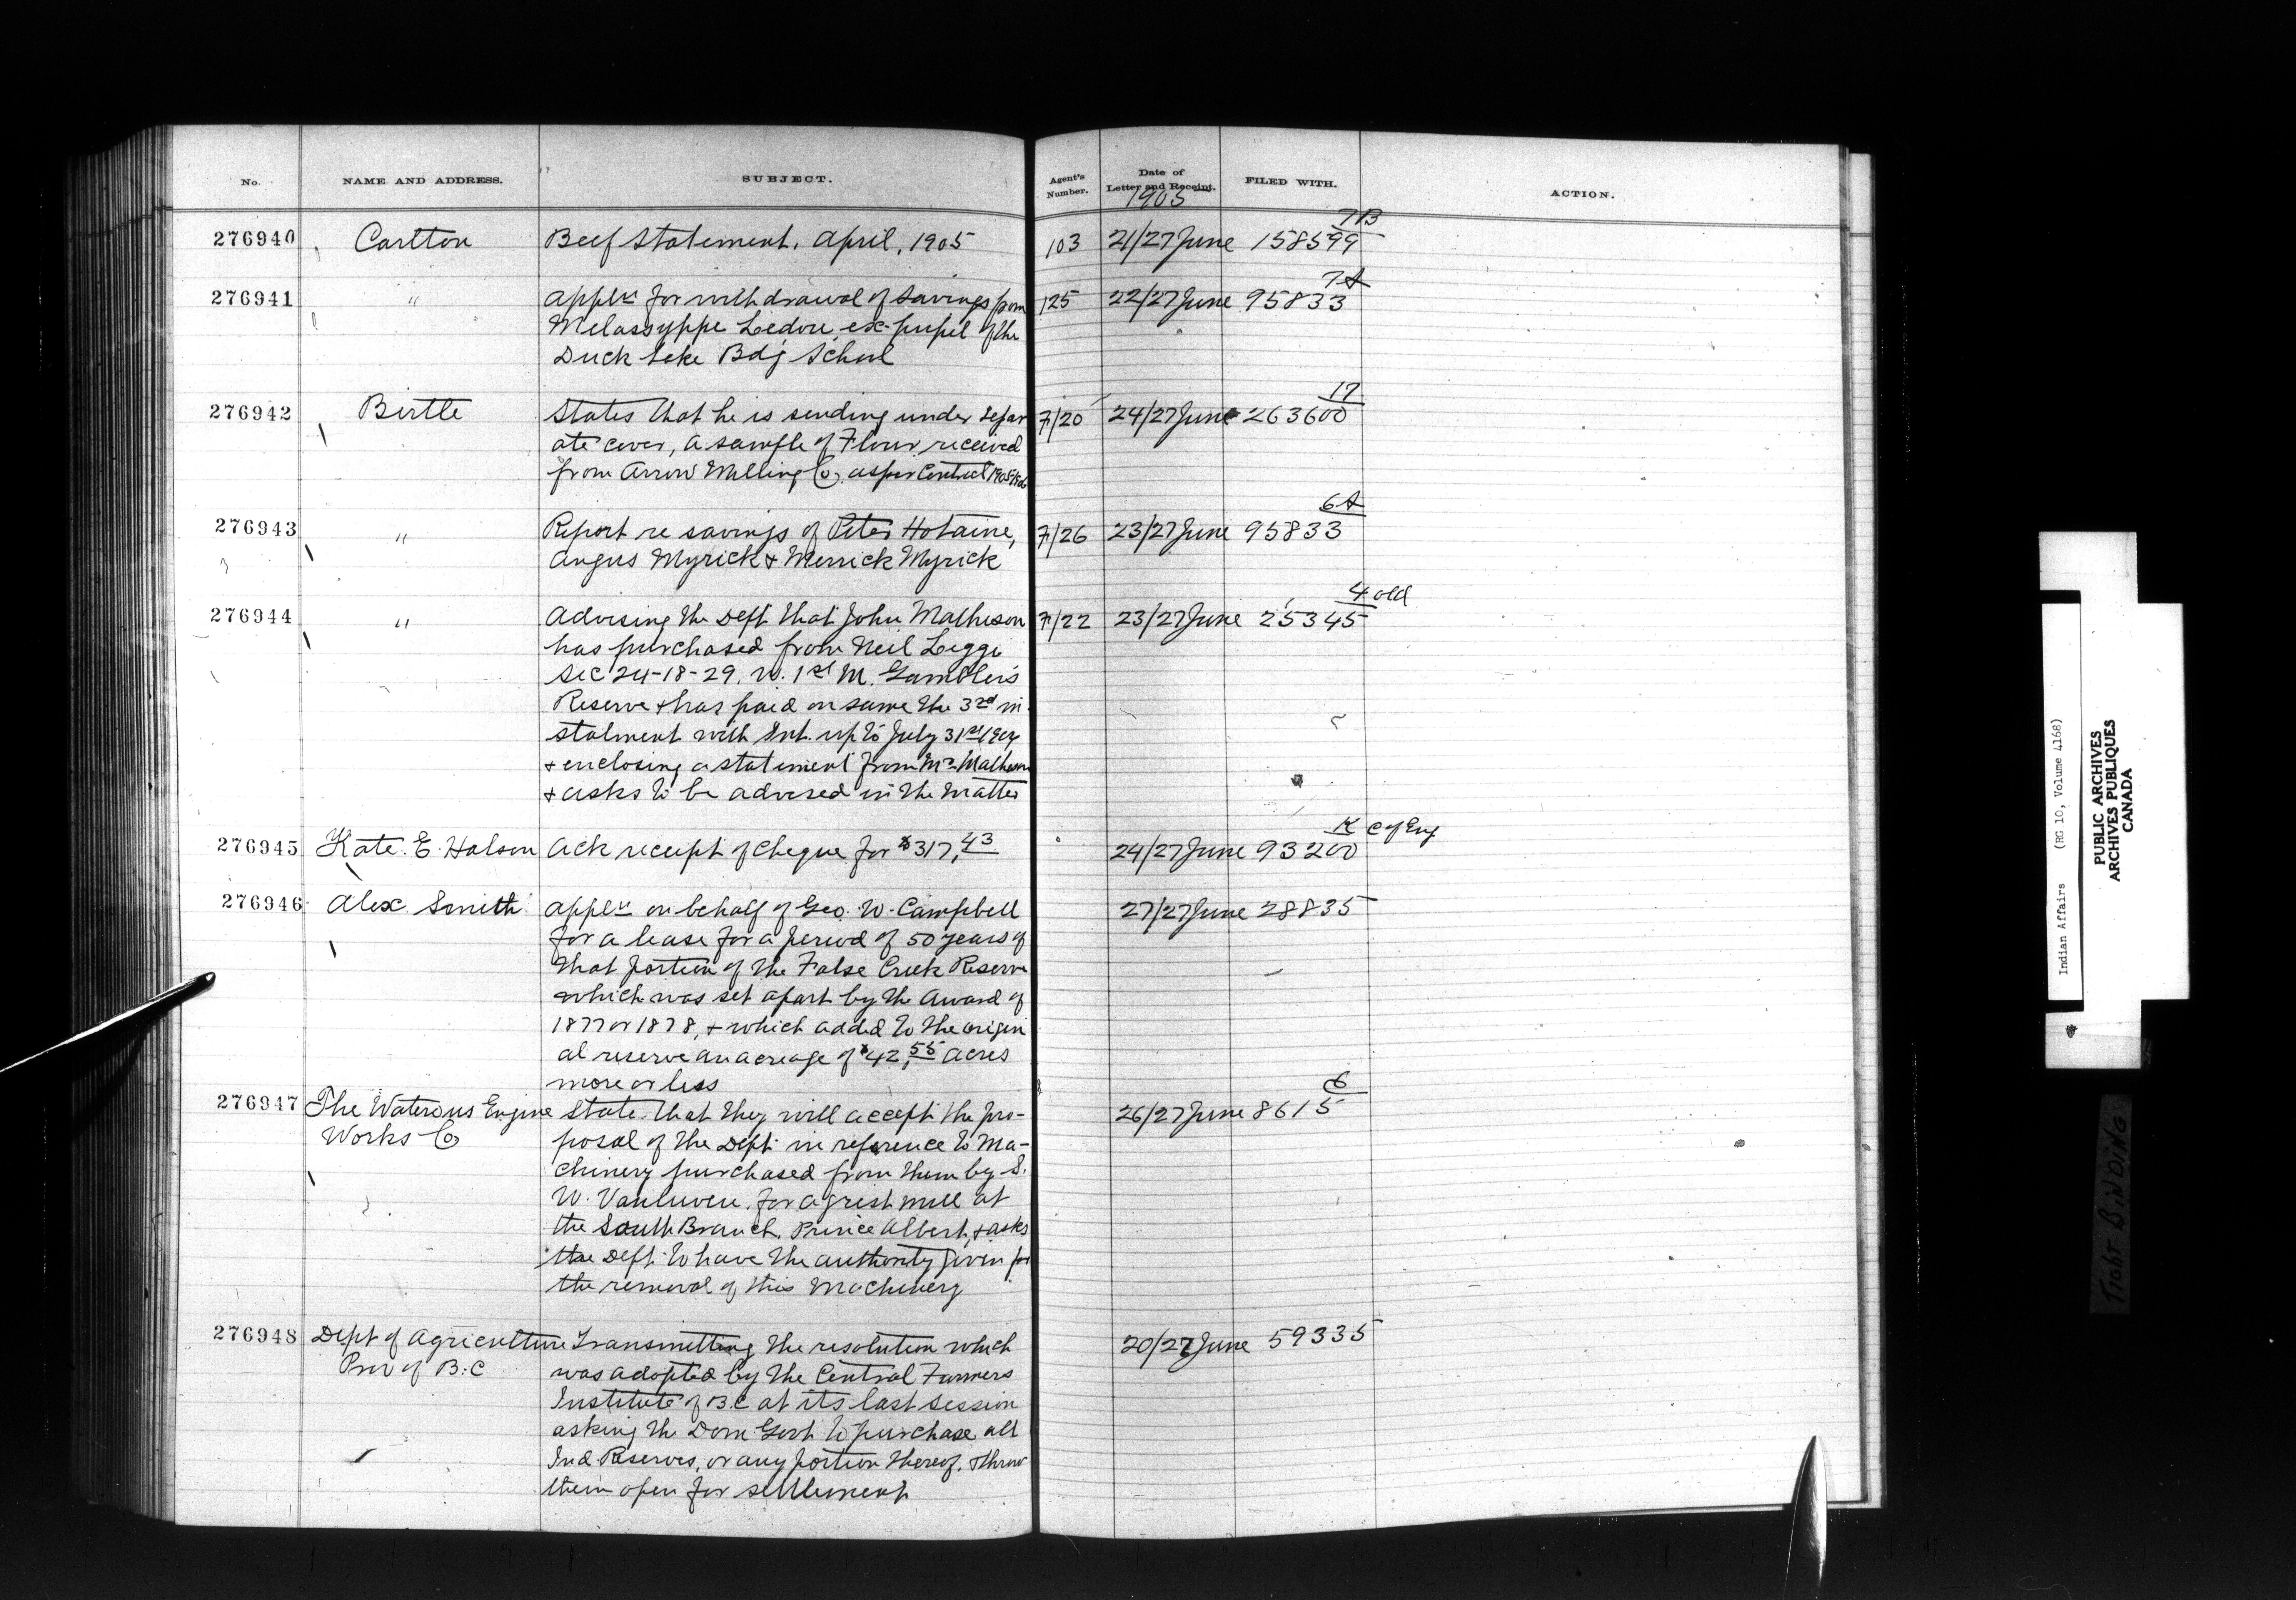 No. NAME AND ADDRESS. SUBJECT. Agent's Number. Date of Letter and Receipt. FILED WITH. ACTION.
1905
7B
276940 Carlton Beef Statement. April, 1905 103 21/27 June 158599
7A
276941 " Applⁿ for withdrawal of savings from 125 22/27 June 95833
Ledoux ex-pupil of the
Duck Lake Bdg School
17
276942 Birtle States that he is sending under separ 7/20 24/27 June 263600
ate cover, a sample of Flour received
from Arrow Milling Co. as per Contract 1905/1906
6A
276943 " Report re savings of Peter Hotaine, 7/26 23/27 June 95833
Angus Myrick & Merrick Myrick
4 old
276944 " Advising the Dept that John Matheson 7/22 23/27 June 25345
has purchased from Neil Leggi
Sec 24-18-29. W. 1st M. Gambler's
Reserve & has paid on same the 3rd in
stalment with Int. up to July 31st 1904
& enclosing a statement from Mr Matheson
& asks to be advised in the matter
K C of Eng
276945 Kate. E. Halson Ack receipt of cheque for $317.43 24/27 June 93200
276946 Alex Smith Applⁿ on behalf of Geo. W. Campbell 27/27 June 28835
for a lease for a period of 50 years of
that portion of the False Creek Reserve
which was set apart by the Award of
1877 or 1878, & which added to the origin
al reserve an acreage of 42.55 acres
more or less
6
276947 The Waterous Engine State that they will accept the pro- 26/27 June 8615
Works Co posal of the Dept in reference to Ma-
chinery purchased from them by S.
W. Vanluven. for a grist mill at
the South Branch. Prince Albert, & asks
the Dept to have the authority given for
the removal of this Machinery
276948 Dept of Agriculture Transmitting the resolution which 20/27 June 59335
Prov of B.C was adopted by the Central Farmers
Institute of B.C at its last session
asking the Dom Govt to purchase all
Ind Reserves, or any portion thereof. & throw
them open for settlement
Indian Affairs (RG 10, Volume 4168)
PUBLIC ARCHIVES
ARCHIVES PUBLIQUES
CANADA
TIGHT BINDING